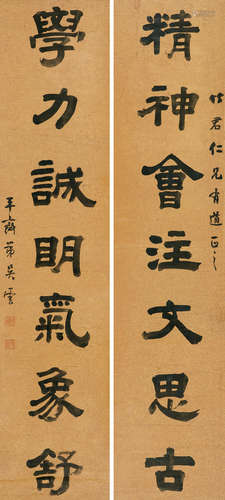 竹君仁兄有道正之
精神會注文思古
學力誠明氣象舒
平齋弟吳雲